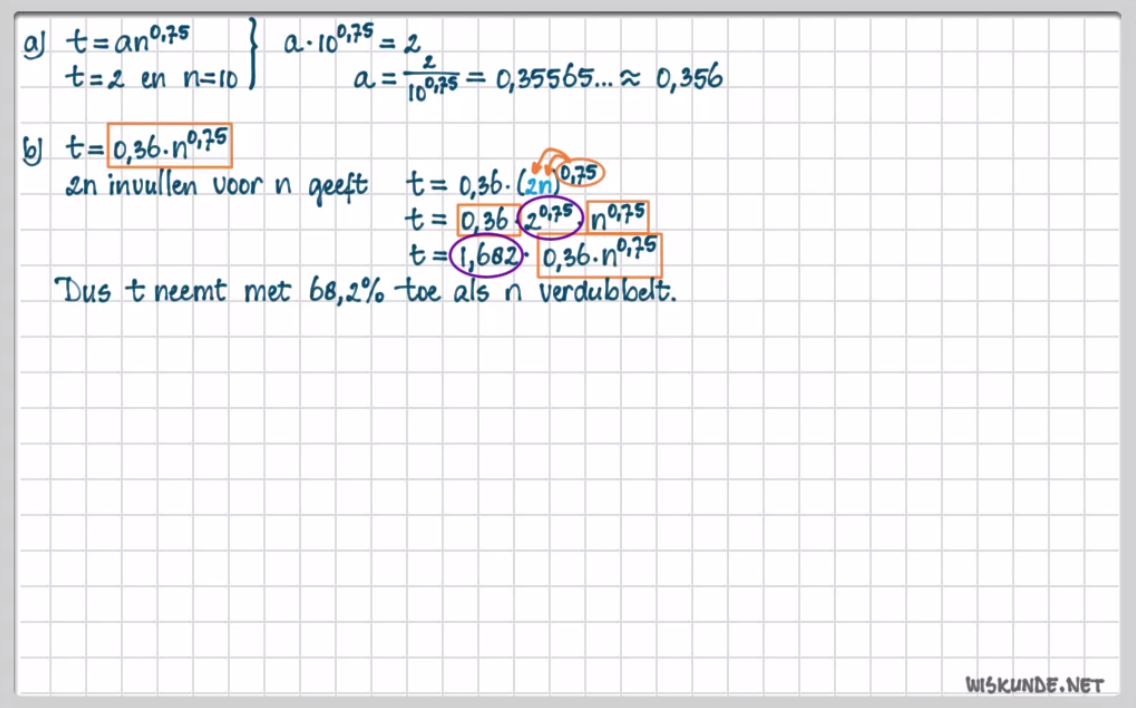 a) t = an^0,75 } a · 10^0,75 = 2
t = 2 en n = 10 a = 2/10^0,75 = 0,35565... ≈ 0,356
b) t = 0,36 · n^0,75
2n invullen voor n geeft t = 0,36 · (2n)^0,75
t = 0,36 · 2^0,75 · n^0,75
t = 1,682 · 0,36 · n^0,75
Dus t neemt met 68,2% toe als n verdubbelt.
WISKUNDE.NET